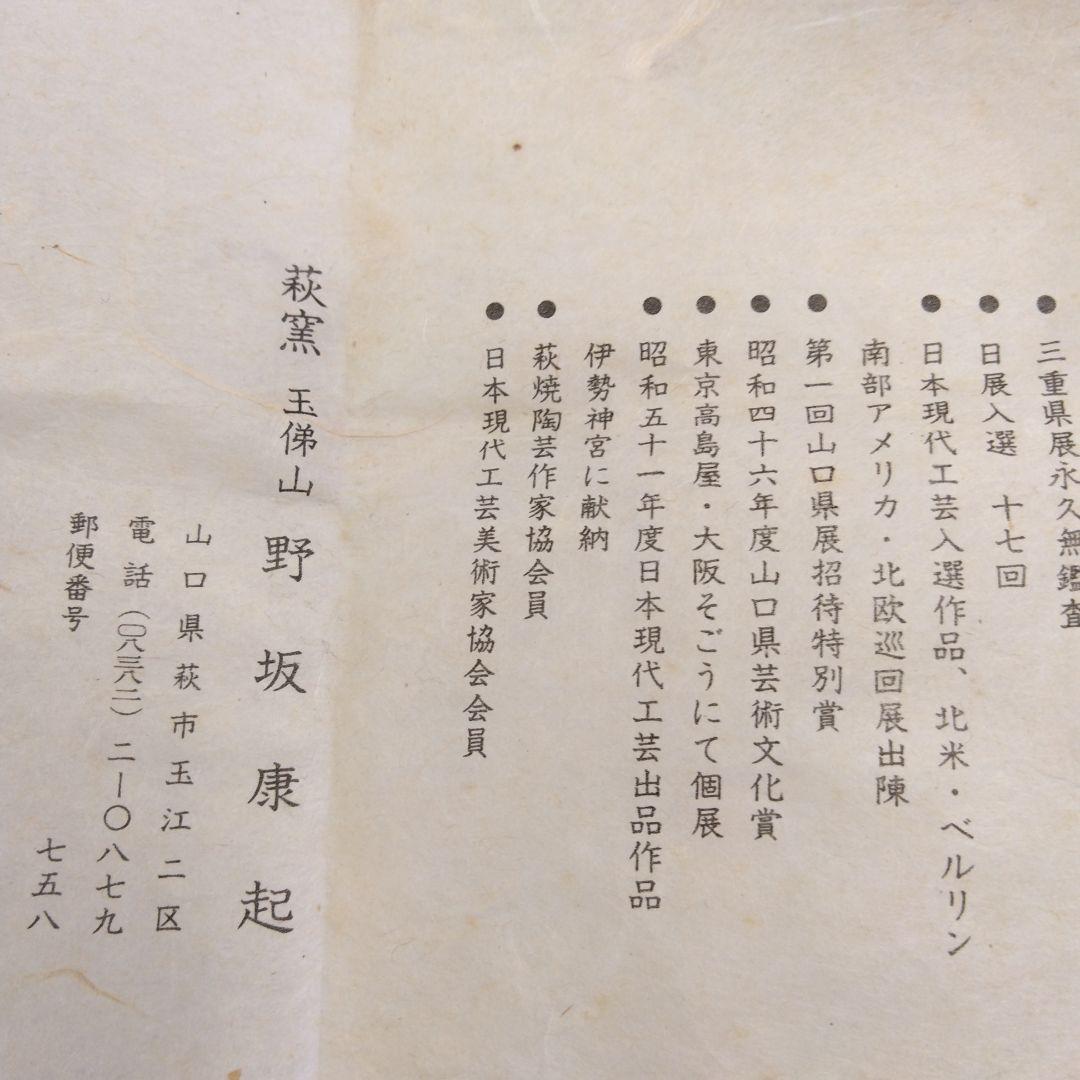 ●三重県展永久無鑑査
●日展入選　十七回
●日本現代工芸入選作品、北米・ベルリン
南部アメリカ・北欧巡回展出陳
●第一回山口県展招待特別賞
●昭和四十六年度山口県芸術文化賞
●東京高島屋・大阪そごうにて個展
●昭和五十一年度日本現代工芸出品作品
伊勢神宮に献納
●萩焼陶芸作家協会会員
●日本現代工芸美術家協会会員
萩窯 玉俤山 野坂康起
山口県萩市玉江二区
電話（〇八三八二）二―〇八七九
郵便番号 七五八